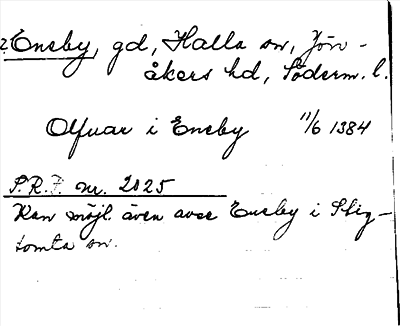 ? Eneby, gd, Halla sn, Jön-
åkers hd, Söderm. l.
Olfuar i Eneby 11/6 1384
S.R.P. nr. 2025
Kan möjl. även avse Eneby i Stig-
tomta sn.